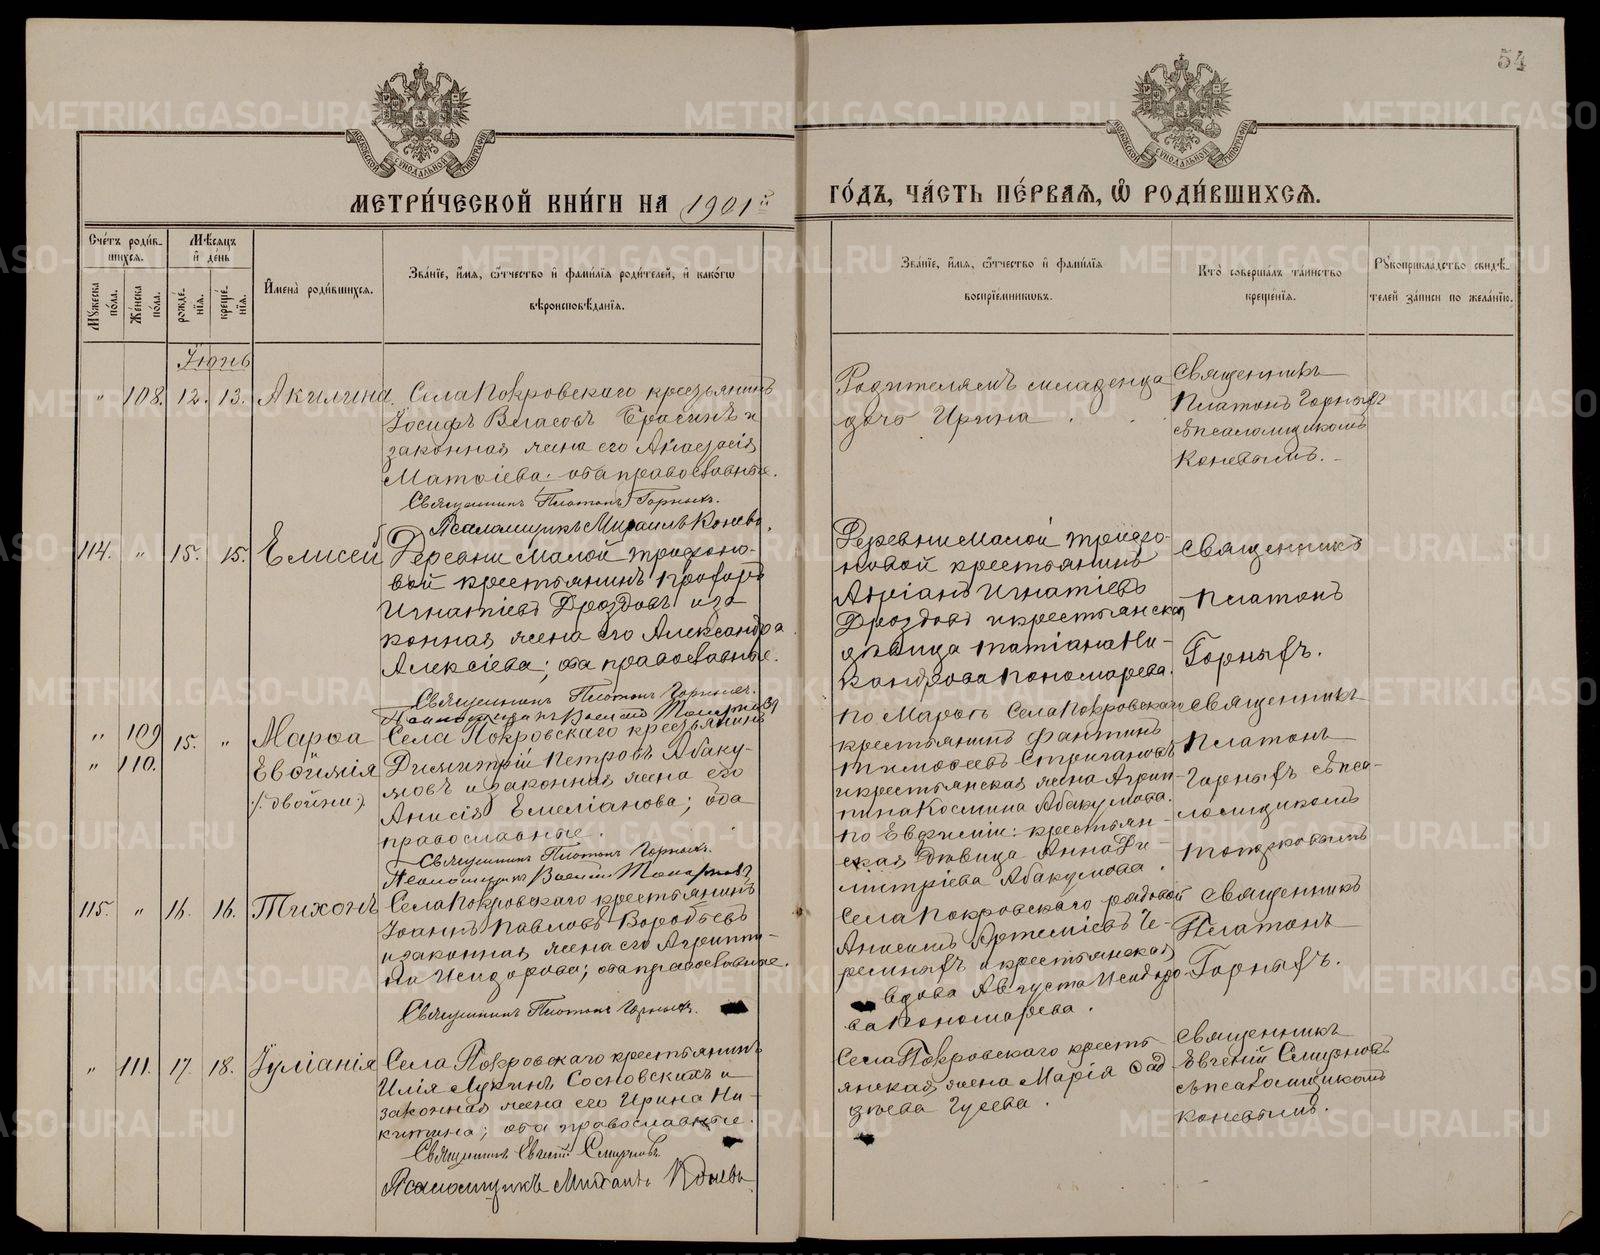 54
МЕТРИ́ЧЕСКОЙ КНИ́ГИ НА 1901й
ГО́ДЪ, ЧА́СТЬ ПЕ́РВАЯ, Ѿ РОДИ́ВШИХСЯ.
Счётъ роди́в-
шихся.
Мꙋжеска по́ла.
Же́нска по́ла.
Мѣсяцъ и де́нь
рожде́-
нїя.
креще́-
нїя.
Имена̀ роди́вшихся.
Зва́нїе, и́мя, ѻ́тчество и фами́лїя роди́телей, и како́гѡ
вѣроисповѣ́данїя.
Зва́нїе, и́мя, ѻ́тчество и фами́лїя
воспрїе́мниковъ.
Кто̀ соверша́лъ та́инство
креще́нїя.
Рꙋкоприкла́дство свидѣ́-
телей за́писи по жела́нїю.
Іюнь
" 108. 12. 13. Акилина.
Села Покровскаго крестьянинъ
Іосифъ Власовъ Брагинъ и
законная жена его Анастасія
Матѳіева: оба православные.
Священникъ Платонъ Горныхъ.
Псаломщикъ Михаилъ Коневъ.
Родителямъ младенца
дочь Ирина.
Священникъ
Платонъ Горныхъ
съ псаломщикомъ
Коневымъ.
114. " 15. 15. Елисей
Деревни Малой Трифоно-
вой крестьянинъ
Игнатіевъ Дроздовъ и за
конная жена его Александра
Алексіева; оба православные.
Священникъ Платонъ Горныхъ.
Псаломщикъ Василій
Деревни Малой Трифо-
новой крестьянинъ
Андріанъ Игнатіевъ
Дроздовъ и крестьянская
дѣвица Татіана Ни-
кандрова Пономарева.
Священникъ
Платонъ
Горныхъ.
" 109 15. " Марѳа
" 110. Евѳимія
/: двойни :/
Села Покровскаго крестьянинъ
Димитрій Петровъ Абаку-
мовъ и законная жена его
Анисія Емеліанова; оба
православные.
Священникъ Платонъ Горныхъ.
Псаломщикъ Василій
По Марѳѣ Села Покровскаго
крестьянинъ Фантинъ
Тимоѳеевъ Стригановъ
и крестьянская жена Агрип-
пина Космина Абакумова.
По Евфиміи: крестьян-
ская дѣвица Анна Ди-
митріева Абакумова.
Священникъ
Платонъ
Горныхъ съ пса-
ломщикомъ
115. " 16. 16. Тихонъ
Села Покровскаго крестьянинъ
Іоаннъ Павловъ Воробьевъ
и законная жена его Агриппи-
на Исидорова; оба православные.
Священникъ Платонъ Горныхъ.
Села Покровскаго рядовой
Анисимъ Артеміевъ Че-
ремныхъ и крестьянская
вдова Августа Исидоро
ва Пономарева.
Священникъ
Платонъ
Горныхъ.
" 111. 17. 18. Іуліанія
Села Покровскаго крестьянинъ
Илія Лукинъ Сосновскихъ и
законная жена его Ирина Ни-
китина; оба православные.
Священникъ Евгеній Смирновъ
Псаломщикъ Михаилъ Коневъ
Села Покровскаго кресть
янская жена Марія Ѳад
дѣева Гусева.
Священникъ
Евгеній Смирновъ
съ псаломщикомъ
Коневымъ.
METRIKI.GASO-URAL.RU